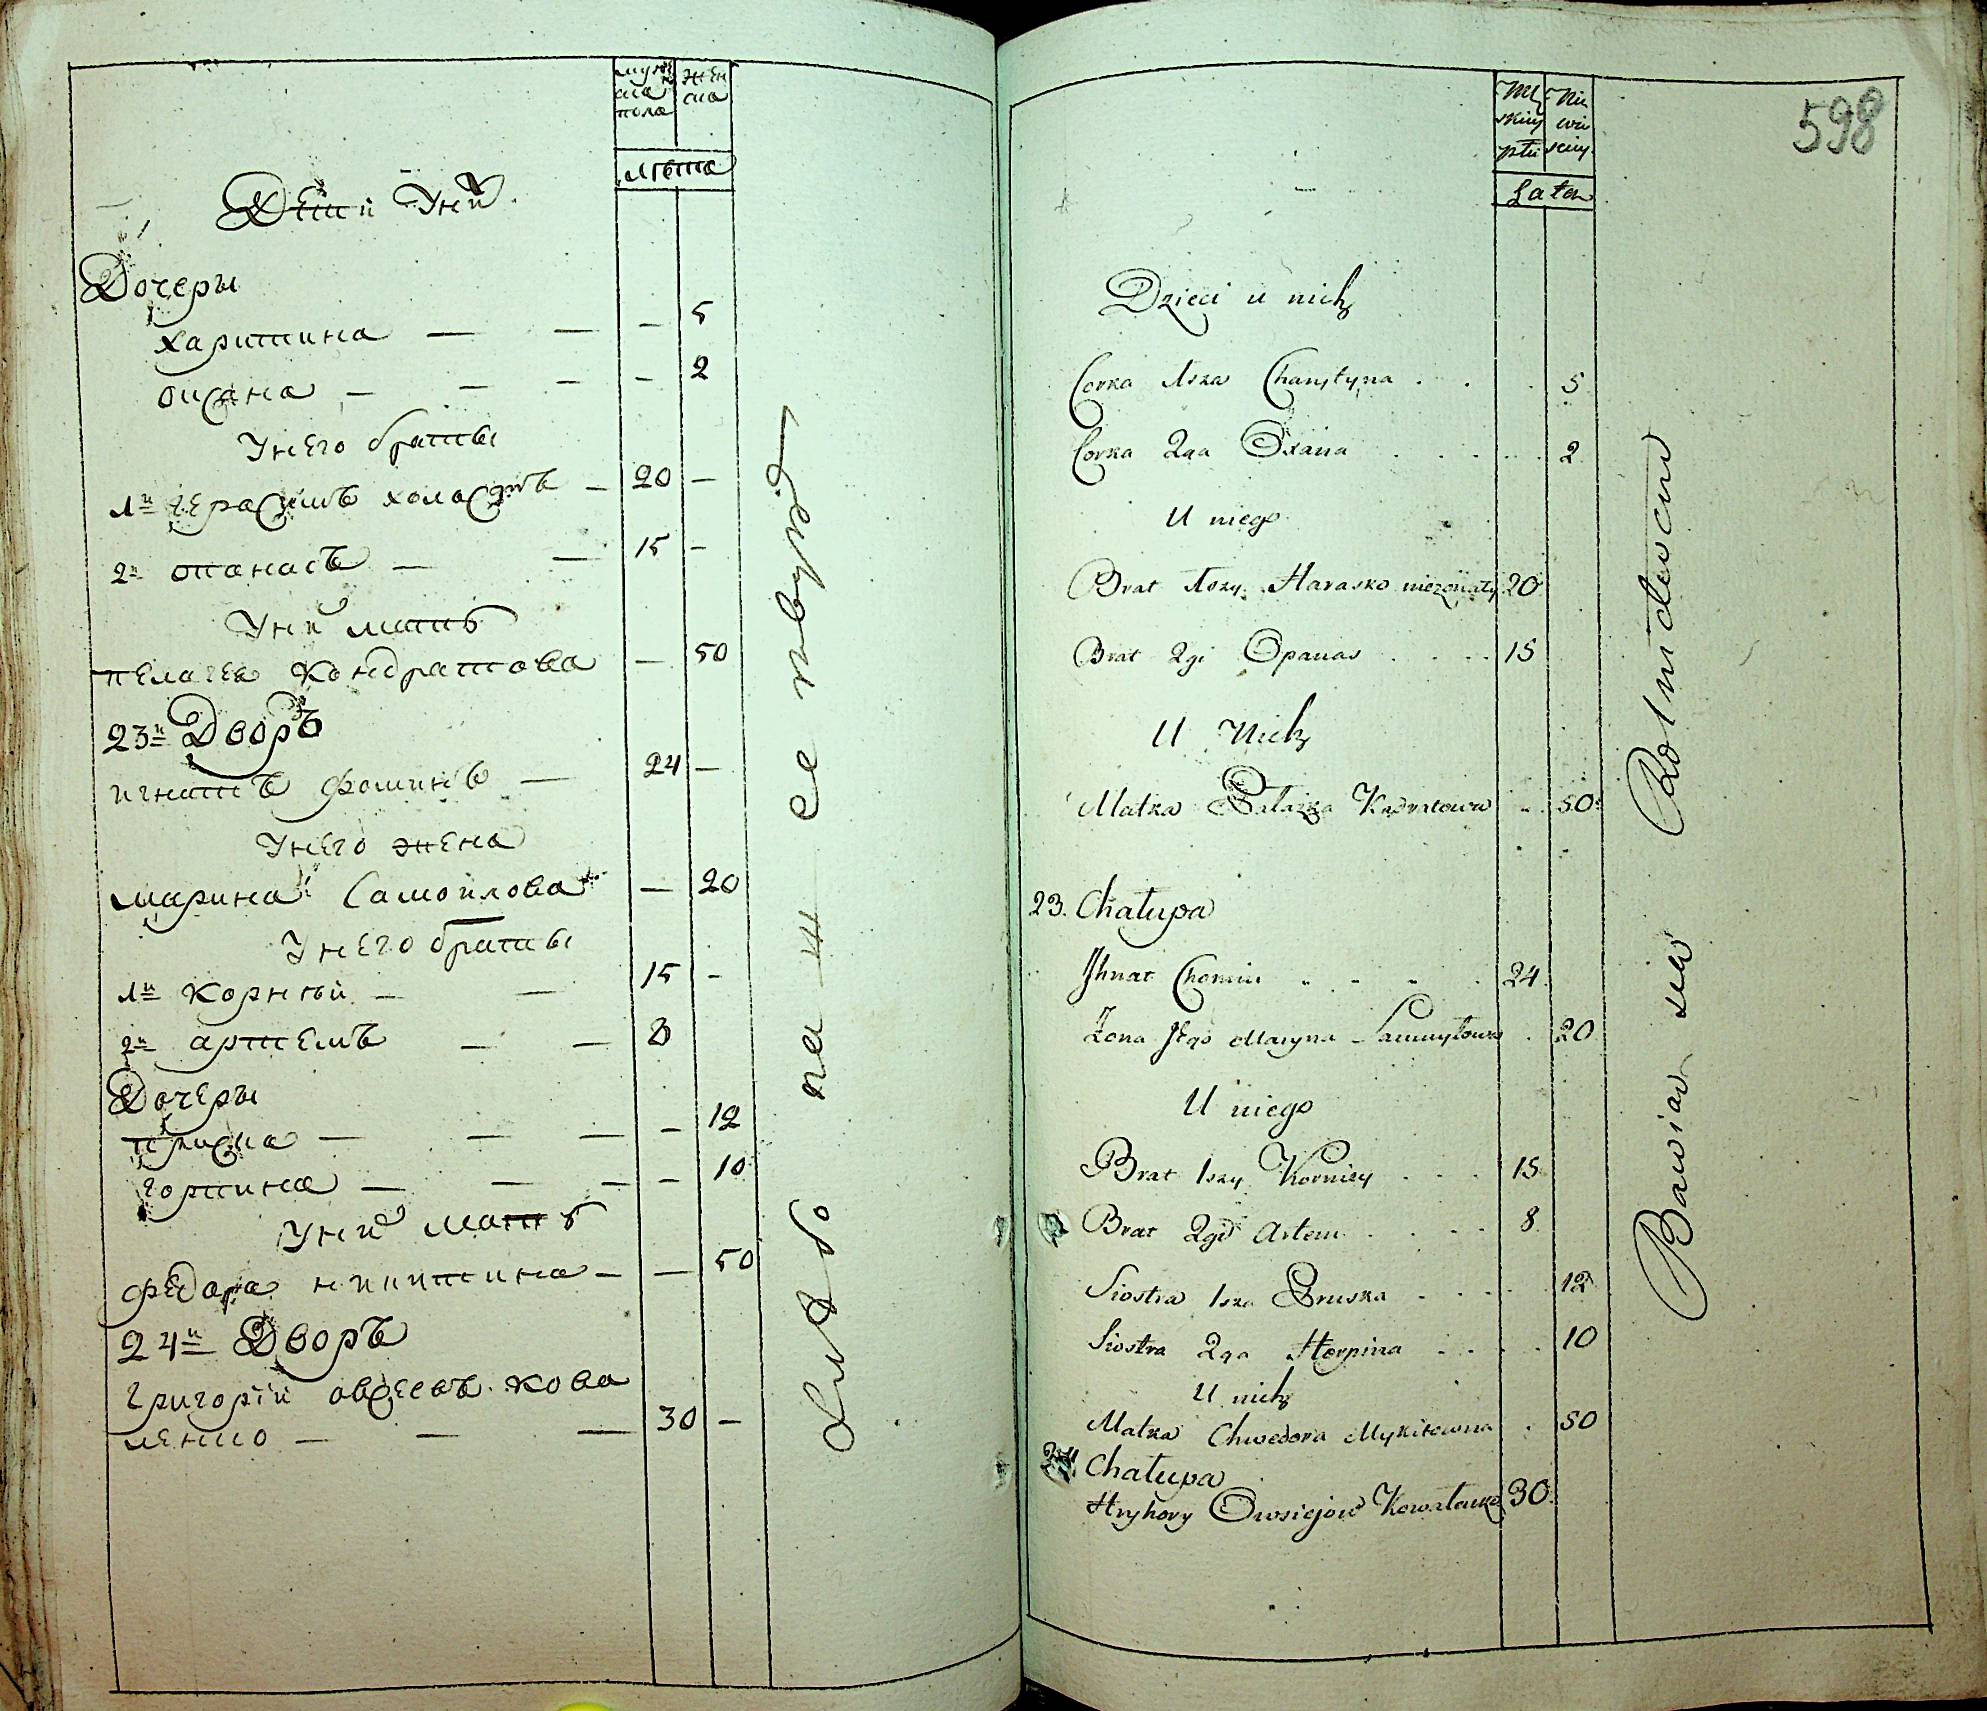 мужеска пола
женска
лѣта
Дѣти у ний
Дочеры
харитина — — — 5
оксана — — — — 2
У него братьи
1й герасимъ холостъ — 20 —
2й опанасъ — — 15 —
У ний мать
пелагея Кондратова — 50
23й Дворъ
игнатъ фоминъ — 24 —
У него жена
марина Самойлова — 20
У него братьи
1й Корнѣй — — 15 —
2й артемъ — — 8
Дочеры
приска — — — — 12
горпина — — — — 10
У ний мать
федора никитина — — 50
24й Дворъ
Григорій овсеевъ Кова
ленко — — — 30 —
598
Męskiey płci
Niewieskiey
Laten
Dzieci u nich
Corka 1sza Charytyna . . . 5
Corka 2ga Oxana . . . . . 2
U niego
Brat 1szy Harasko niezonaty 20
Brat 2gi Opanas . . . . 15
U Nich
Matka Pałazka Kądratowa . 50
23. Chałupa
Jhnat Chomin . . . . 24
Zona Jego Maryna Samuyłowa . 20
U niego
Brat 1szy Korniey . . . 15
Brat 2gi Artem . . . . 8
Siostra 1sza Pruska . . . . . 12
Siostra 2ga Horpina . . . . 10
U nich
Matka Chwedora Mykitowna . 50
24. Chałupa
Hryhory Owsiejow Kowalenko 30
Bawią się Rolnictwem